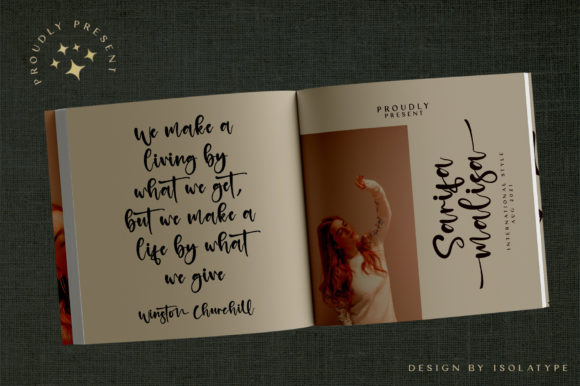 PROUDLY PRESENT
We make a
living by
what we get,
but we make a
life by what
we give
Winston Churchill
PROUDLY
PRESENT
Sarisa
malisa
INTERNATIONAL STYLE
AUG 2021
DESIGN BY ISOLATYPE